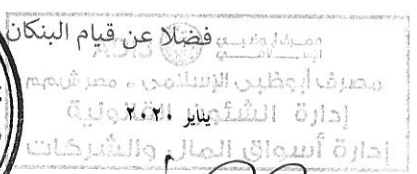 فضلا عن قيام البنكان
مصرف أبوظبي الإسلامي
مصرف أبوظبي الإسلامي - مصر ش.م.م
إدارة الشئون القانونية
يناير ٢٠٢٠
إدارة أسواق المال والشركات